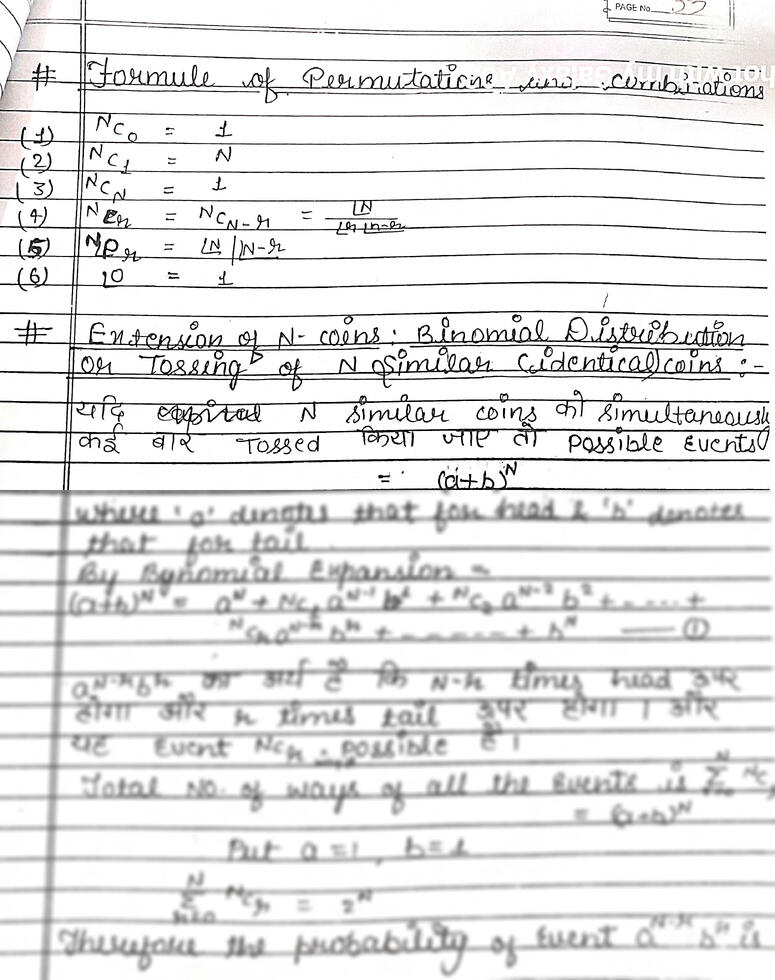 PAGE No. 33
# Formule of Permutations and combinations
(1) ᴺC₀ = 1
(2) ᴺC₁ = N
(3) ᴺC_N = 1
(4) ᴺC_r = ᴺC_{N-r} = ⌊N / ⌊r ⌊n-r
(5) ᴺP_r = ⌊N / ⌊N-r
(6) ⌊0 = 1
# Extension of N- coins : Binomial Distribution
or Tossing of N Similar (identical) coins :-
यदि capital N similar coins को simultaneously
कई बार Tossed किया जाए तो possible Events
= (a+b)ᴺ
where 'a' denotes that for head & 'b' denotes
that for tail
By Bynomial Expansion =
(a+b)ᴺ = aᴺ + ᴺC₁ aᴺ⁻¹ b¹ + ᴺC₂ aᴺ⁻² b² + ----- +
ᴺC_r aᴺ⁻ʳ bʳ + ------ + bᴺ —— ①
aᴺ⁻ʳ bʳ का अर्थ है कि N-r times head ऊपर
होगा और r times tail ऊपर होगा । और
यह Event ᴺC_r possible है ।
Total No. of ways of all the Events is Σ ᴺC_r
= (a+b)ᴺ
Put a=1, b=1
Σ ᴺC_r = 2ᴺ
Therefore the probability of Event aᴺ⁻ʳ bʳ is